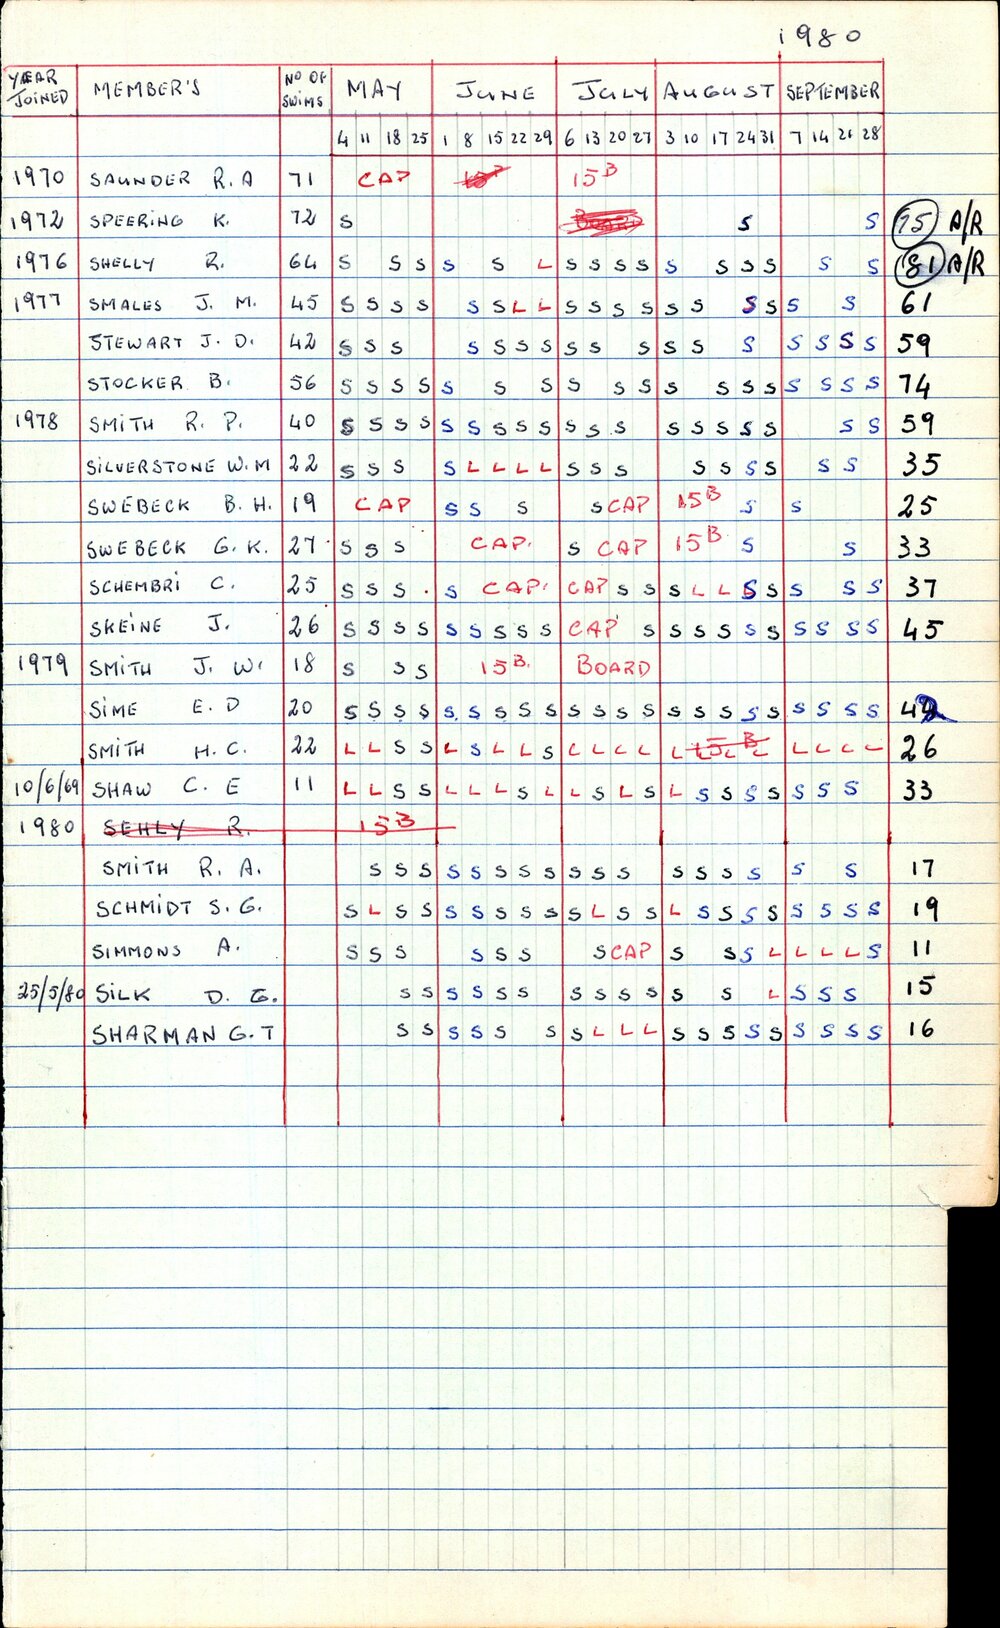 1980
YEAR JOINED MEMBER'S NO OF SWIMS MAY JUNE JULY AUGUST SEPTEMBER
4 11 18 25 1 8 15 22 29 6 13 20 27 3 10 17 24 31 7 14 21 28
1970 SAUNDER R.A 71 CAP 15B 15B
1972 SPEERING K. 72 S BOARD S S 75 A/R
1976 SHELLY R. 64 S S S S S L S S S S S S S S S S 81 A/R
1977 SMALES J. M. 45 S S S S S S L L S S S S S S S S S S 61
STEWART J. D. 42 S S S S S S S S S S S S S S S S S S 59
STOCKER B. 56 S S S S S S S S S S S S S S S S S S 74
1978 SMITH R. P. 40 S S S S S S S S S S S S S S S S S S S 59
SILVERSTONE W.M 22 S S S S L L L L S S S S S S S S S 35
SWEBECK B. H. 19 CAP S S S S CAP 15B S S 25
SWEBECK G. K. 27 S S S CAP. S CAP 15B S S 33
SCHEMBRI C. 25 S S S . S CAP. CAP S S S L L S S S S S 37
SKEINE J. 26 S S S S S S S S S CAP S S S S S S S S S S 45
1979 SMITH J. W. 18 S S S 15B. BOARD
SIME E. D 20 S S S S S S S S S S S S S S S S S S S S S S 42
SMITH H. C. 22 L L S S L S L L S L L L L L 15B L L L L L 26
10/6/69 SHAW C. E 11 L L S S L L L S L L S L S L S S S S S S S 33
1980 SEHLY R. 15B
SMITH R. A. S S S S S S S S S S S S S S S S S 17
SCHMIDT S. G. S L S S S S S S S S L S S L S S S S S S S S 19
SIMMONS A. S S S S S S S CAP S S S L L L L S 11
25/5/80 SILK D. G. S S S S S S S S S S S S L S S S 15
SHARMAN G. T S S S S S S S L L L S S S S S S S S S 16